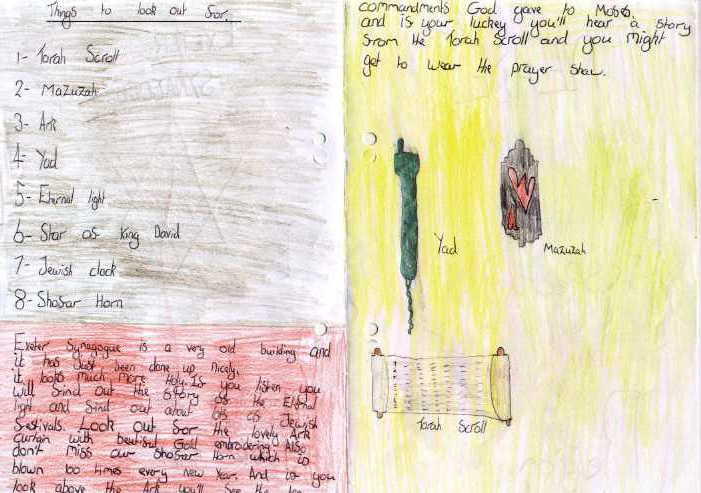 Things to look out for..
1- Torah Scroll
2- Mazuzah
3- Ark
4- Yad
5- Eternal light
6- Star of King David
7- Jewish clock
8- Shofar Horn
Exeter Synagogue is a very old building and
it has just been done up nicely.
it looks much more Holy. If you listen you
will find out the story of the Eternal
light and find out about lots of Jewish
festivals. Look out for the lovely Ark
curtain with beutiful Gold embrodering. Also
don't miss our Shofar Horn which is
blown 100 times every new Year. And if you
look above the Ark you'll see the ten
commandments God gave to Moses
and if your luckey you'll hear a story
from the Torah Scroll and you might
get to wear the prayer shaw.
Yad
Mazuzah
Torah Scroll